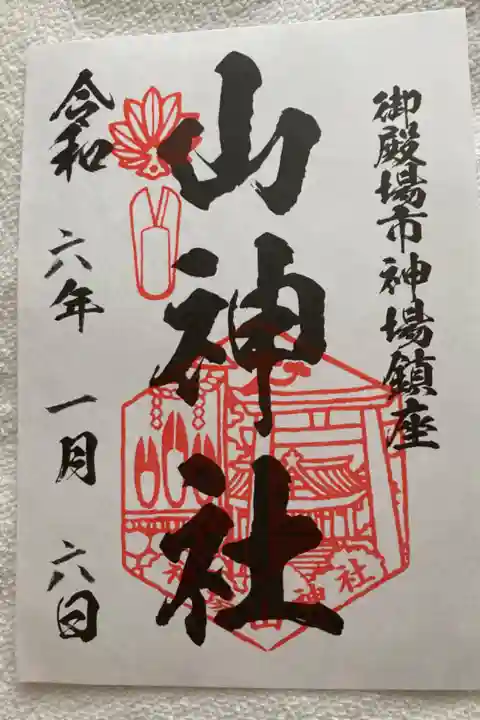 御殿場市神場鎮座
山神社
令和 六年 一月 六日